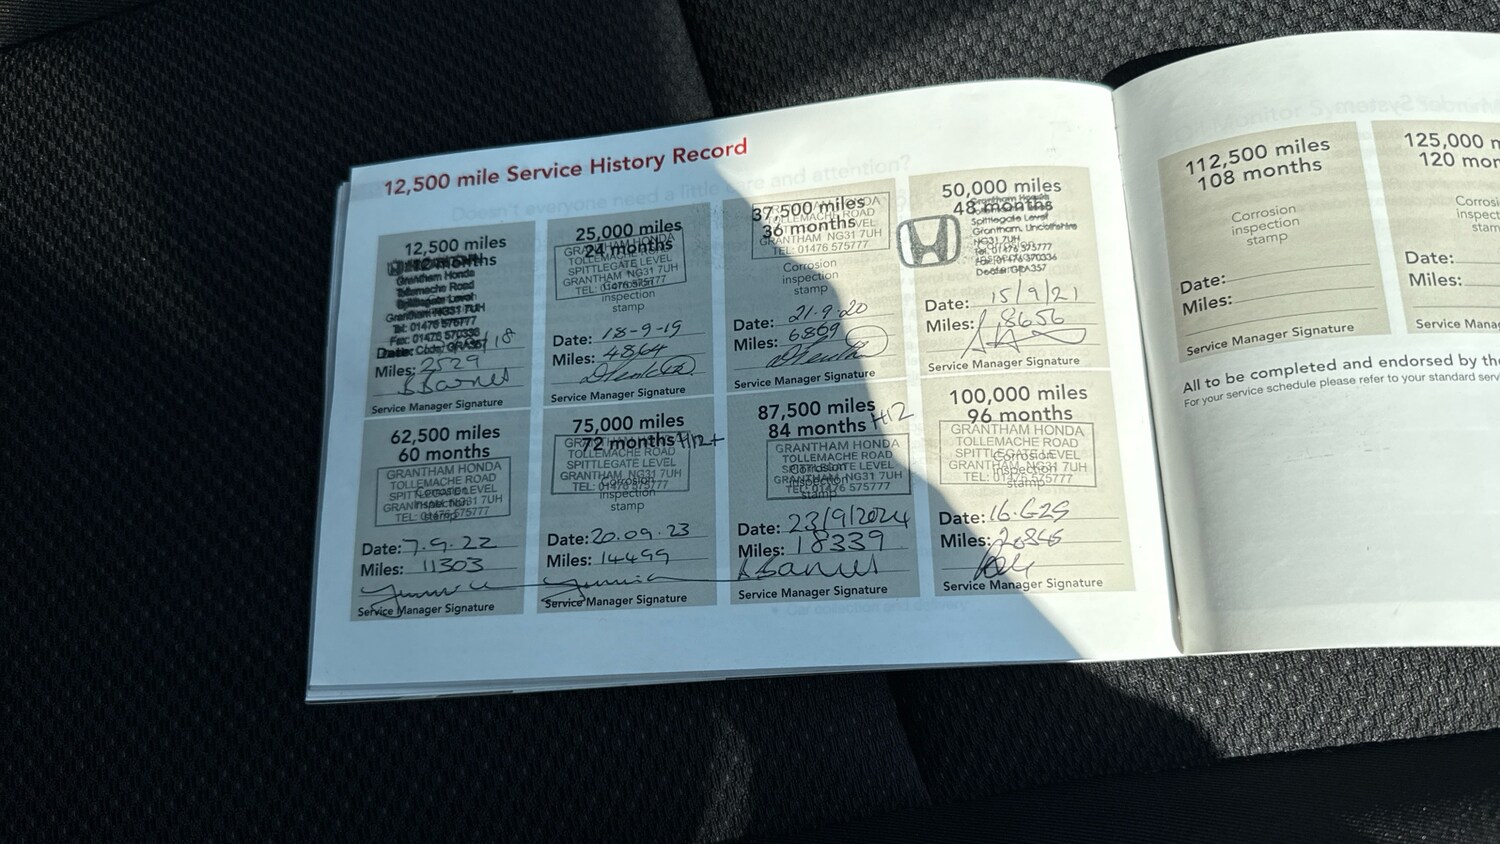 12,500 mile Service History Record
12,500 miles
12 months
Grantham Honda
Tollemache Road
Spittlegate Level
Grantham NG31 7UH
Tel: 01476 575777
Fax: 01476 570336
Dealer Code: GRA357
Date: /18
Miles: 2529
Service Manager Signature
25,000 miles
24 months
GRANTHAM HONDA
TOLLEMACHE ROAD
SPITTLEGATE LEVEL
GRANTHAM NG31 7UH
TEL: 01476 575777
Corrosion
inspection
stamp
Date: 18-9-19
Miles: 4864
Service Manager Signature
37,500 miles
36 months
GRANTHAM HONDA
TOLLEMACHE ROAD
SPITTLEGATE LEVEL
GRANTHAM NG31 7UH
TEL: 01476 575777
Corrosion
inspection
stamp
Date: 21-9-20
Miles: 6869
Service Manager Signature
50,000 miles
48 months
Grantham Honda
Spittlegate Level
Grantham, Lincolnshire
NG31 7UH
Tel: 01476 575777
Fax: 01476 570336
Dealer GRA357
Date: 15/9/21
Miles: 8656
Service Manager Signature
62,500 miles
60 months
GRANTHAM HONDA
TOLLEMACHE ROAD
SPITTLEGATE LEVEL
GRANTHAM NG31 7UH
TEL: 01476 575777
Corrosion
inspection
stamp
Date: 7.9.22
Miles: 11303
Service Manager Signature
75,000 miles
72 months H12+
GRANTHAM HONDA
TOLLEMACHE ROAD
SPITTLEGATE LEVEL
GRANTHAM NG31 7UH
TEL: 01476 575777
Corrosion
inspection
stamp
Date: 20.09.23
Miles: 14499
Service Manager Signature
87,500 miles
84 months H12
GRANTHAM HONDA
TOLLEMACHE ROAD
SPITTLEGATE LEVEL
GRANTHAM NG31 7UH
TEL: 01476 575777
Corrosion
inspection
stamp
Date: 23/9/2024
Miles: 18339
Service Manager Signature
100,000 miles
96 months
GRANTHAM HONDA
TOLLEMACHE ROAD
SPITTLEGATE LEVEL
GRANTHAM NG31 7UH
TEL: 01476 575777
Corrosion
inspection
stamp
Date:
Miles:
Service Manager Signature
112,500 miles
108 months
Corrosion
inspection
stamp
Date:
Miles:
Service Manager Signature
125,000 m
120 mon
Corrosi
inspect
stam
Date:
Miles:
Service Mana
All to be completed and endorsed by th
For your service schedule please refer to your standard serv